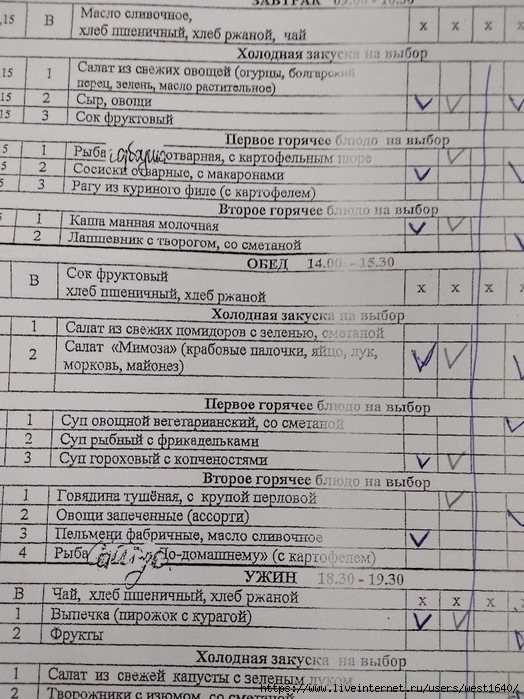 ЗАВТРАК 09.00 - 10.30
,15 В Масло сливочное, х х х х
хлеб пшеничный, хлеб ржаной, чай
Холодная закуска на выбор
15 1 Салат из свежих овощей (огурцы, болгарский
перец, зелень, масло растительное)
15 2 Сыр, овощи
15 3 Сок фруктовый
Первое горячее блюдо на выбор
5 1 Рыба отварная, с картофельным пюре
5 2 Сосиски отварные, с макаронами
5 3 Рагу из куриного филе (с картофелем)
Второе горячее блюдо на выбор
1 Каша манная молочная
2 Лапшевник с творогом, со сметаной
ОБЕД 14.00 - 15.30
В Сок фруктовый х х х х
хлеб пшеничный, хлеб ржаной
Холодная закуска на выбор
1 Салат из свежих помидоров с зеленью, сметаной
2 Салат «Мимоза» (крабовые палочки, яйцо, лук,
морковь, майонез)
Первое горячее блюдо на выбор
1 Суп овощной вегетарианский, со сметаной
2 Суп рыбный с фрикадельками
3 Суп гороховый с копченостями
Второе горячее блюдо на выбор
1 Говядина тушёная, с крупой перловой
2 Овощи запеченные (ассорти)
3 Пельмени фабричные, масло сливочное
4 Рыба По-домашнему» (с картофелем)
УЖИН 18.30 - 19.30
В Чай, хлеб пшеничный, хлеб ржаной х х х
1 Выпечка (пирожок с курагой)
2 Фрукты
Холодная закуска на выбор
1 Салат из свежей капусты с зеленым луком
2 Творожники с изюмом, со сметаной
https://www.liveinternet.ru/users/west1640/